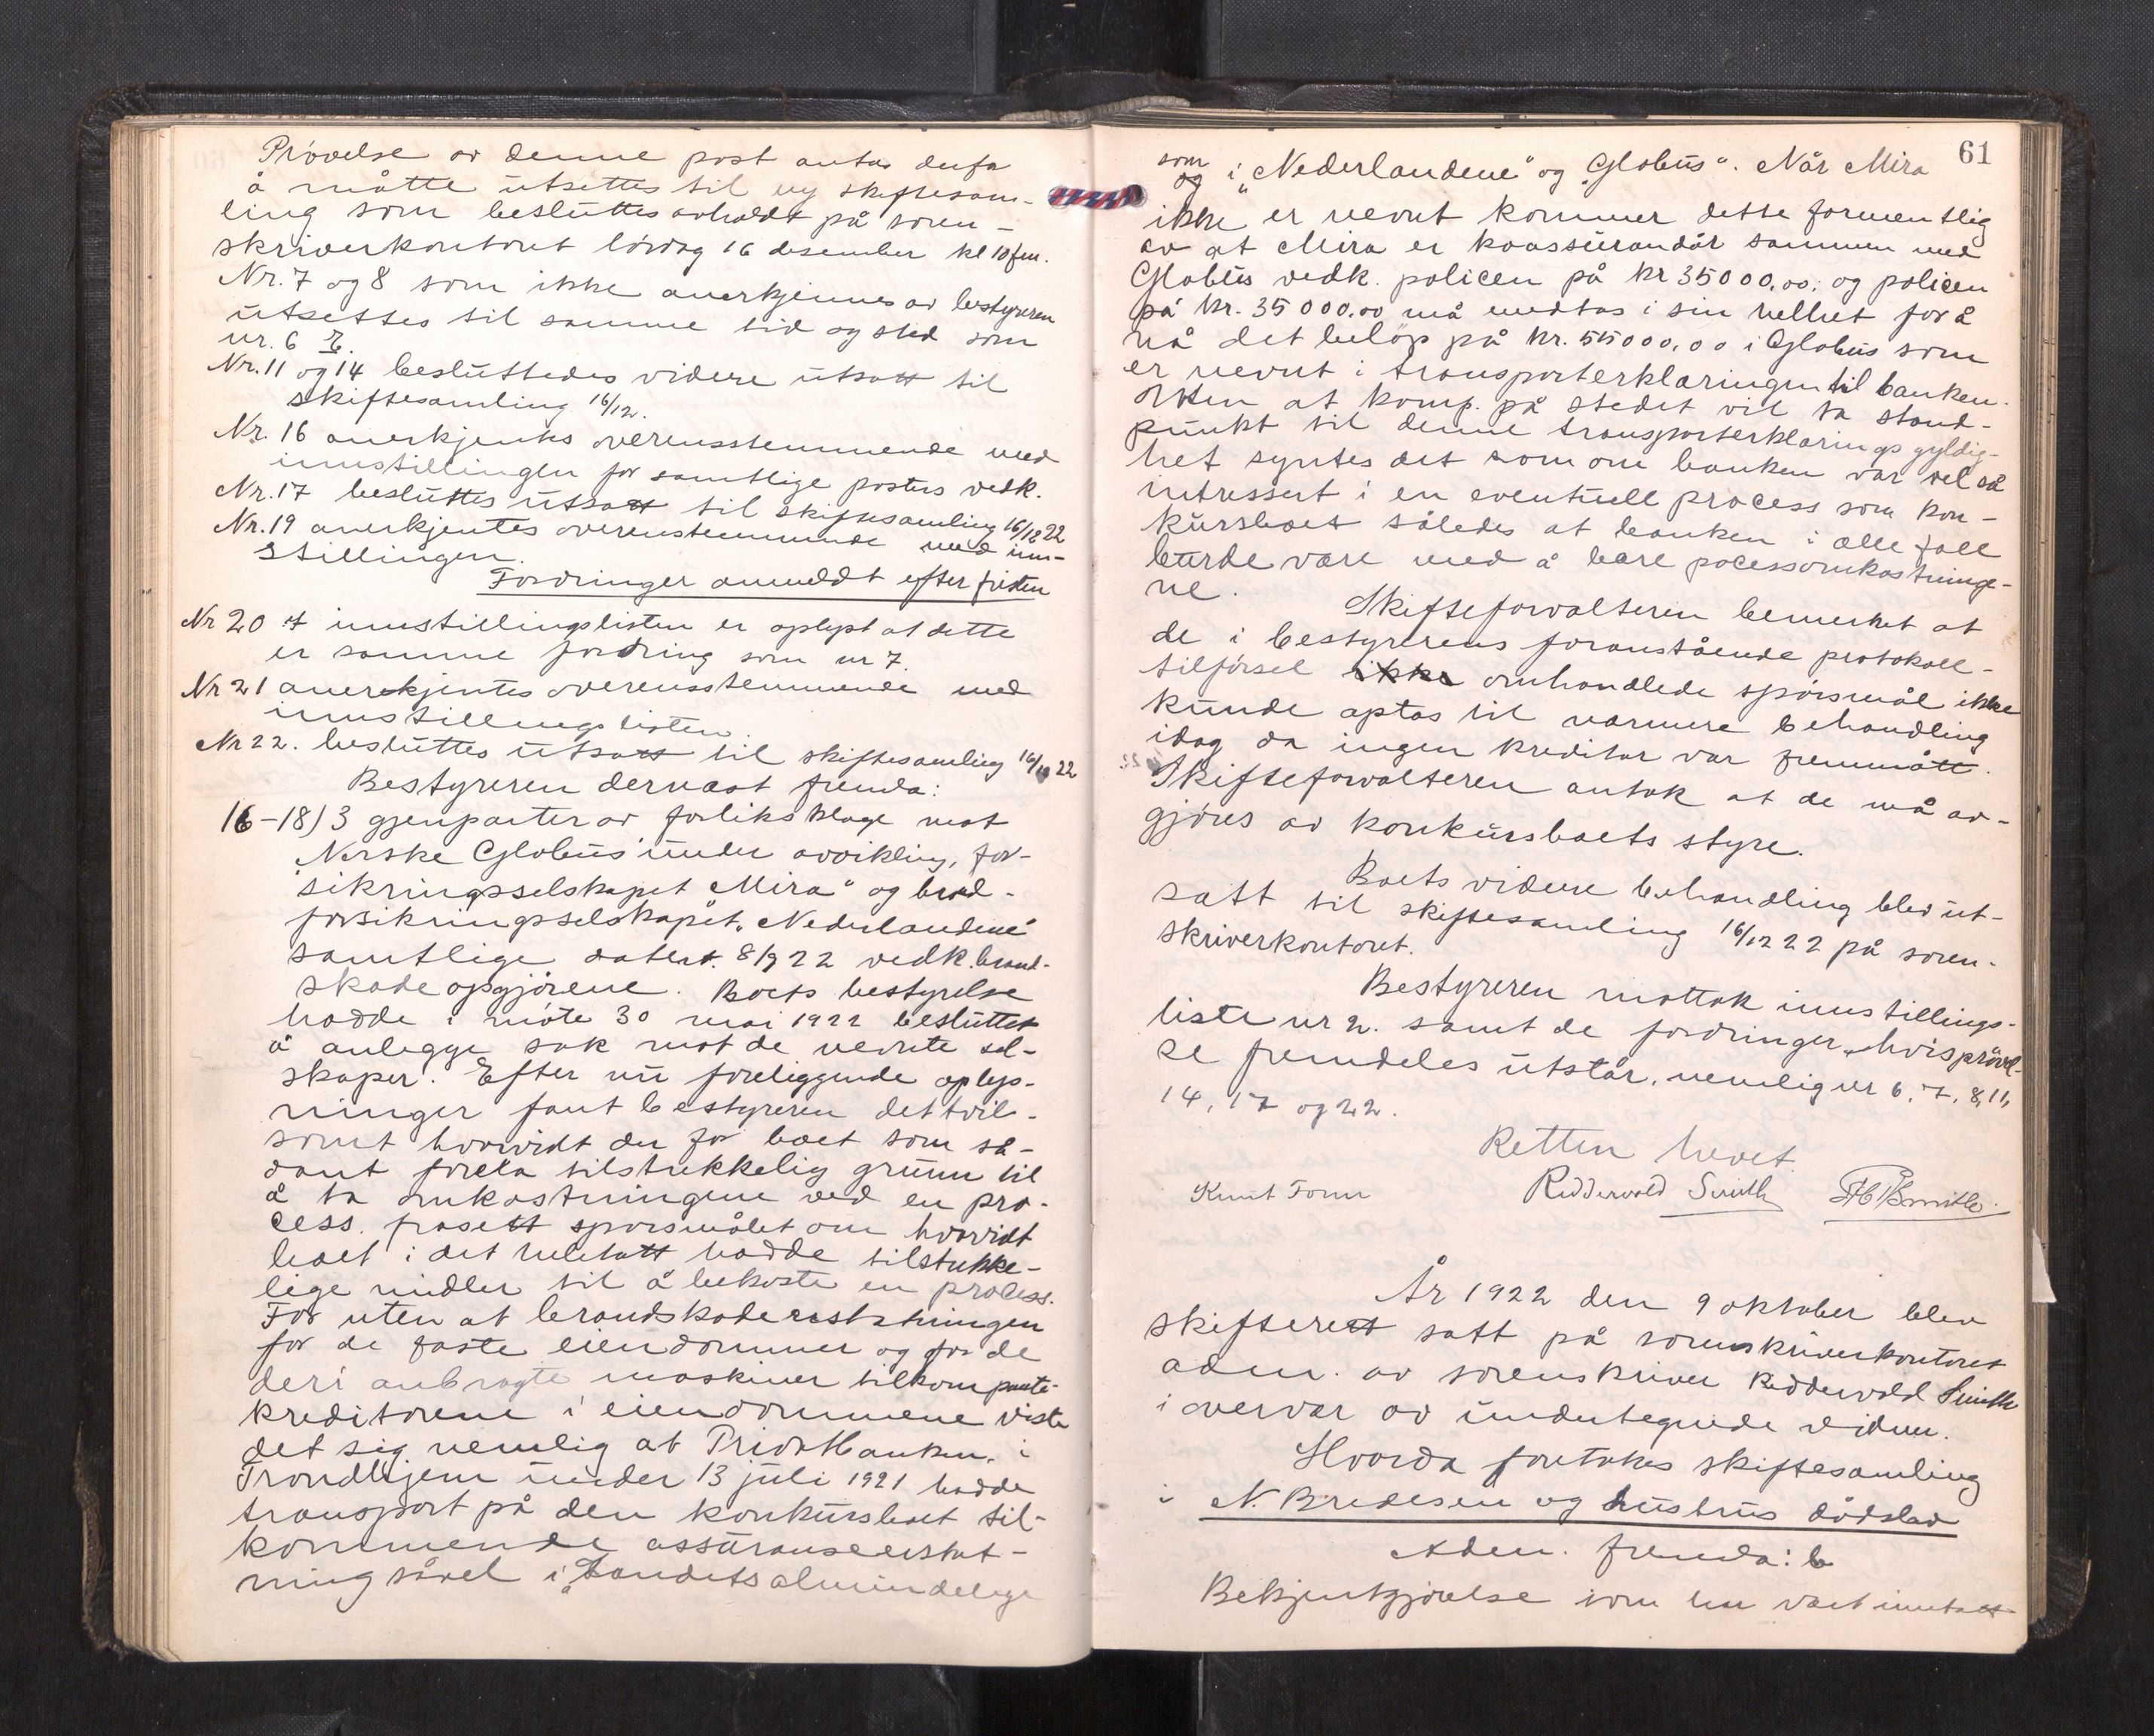 Prövelse av denne post antas derfor
å måtte utsettes til ny skiftesam-
ling som besluttes avholdt på soren-
skriverkontoret lördag 16 desember kl 10 fm.
Nr. 7 og 8 som ikke anerkjennes av bestyreren
utsettes til samme tid og sted som
nr. 6
Nr. 11 og 14 besluttedes videre utsatt til
skiftesamling 16/12.
Nr. 16 anerkjentes overensstemmende med
innstillingen for samtlige posters vedk.
Nr. 17 besluttes utsatt til skiftesamling 16/12 22
Nr. 19 anerkjentes overenstemmende med inn-
stillingen.
Fordringer anmeldt efter fristen
Nr 20 innstillingslisten er oplyst at dette
er samme fordring som nr 7.
Nr 21 anerkjentes overensstemmende med
innstillingslisten.
Nr 22. besluttes utsatt til skiftesamling 16/12 22
Bestyreren dernæst fremla:
16-18) 3 gjenparter av forliksklage mot
Norske Globus under avvikling, for-
sikringsselskapet "Mira" og brand-
forsikringsselskapet "Nederlandene"
samtlige datert 8/9 22 vedk. brand-
skadeopgjörene. Boets bestyrelse
hadde i möte 30 mai 1922 besluttet
å anlegge sak mot de nevnte sel-
skaper. Efter nu foreliggende oplys-
ninger fant bestyreren det tvil-
somt hvorvidt der for boet som så-
dant forela tilstrekkelig grunn til
å ta omkostningene ved en pro-
cess. frasett spörsmålet om hvorvidt
boet i det heletatt hadde tilstrekke-
lige midler til å bekoste en process.
For uten at brandskadeerstatningen
for de faste eiendommer og for de
deri anbragte maskiner tilkom pante-
kreditorene i eiendommene viste
det sig nemlig at Privatbanken i
Trondhjem under 13 juli 1921 hadde
transport på den konkursboet til-
kommende assuranseerstat-
ning såvel i "Landets almindelige
61
som
og i "Nederlandene" og "Globus". Når Mira
ikke er nevnt kommer dette formentlig
av at Mira er koassurandör sammen med
Globus vedk. policen på kr 35000,00; og policen
på kr. 35000,00 må medtas i sin helhet for å
nå det belöp på kr. 55000,00 i Globus som
er nevnt i transporterklæringen til banken.
Uten at komp. på stedet vil ta stand-
punkt til denne transporterklærings gyldig-
het syntes det som om banken var vel så
intressert i en eventuell process som kon-
kursboet således at banken i alle fall
burde være med å bære pocessomkostninge-
ne.
Skifteforvalteren bemerket at
de i bestyrerens foranstående protokoll-
tilförsel ikke omhandlede spörsmål ikke
kunde optas til nærmere behandling
idag da ingen kreditor var fremmött.
Skifteforvalteren antok at de må av-
gjöres av konkursboets styre.
Boets videre behandling blev ut-
satt til skiftesamling 16/12 22 på soren-
skriverkontoret.
Bestyreren mottok innstillings-
liste nr 2. samt de fordringer, hvis prövel-
se fremdeles utstår, nemlig nr 6, 7, 8, 11,
14, 17 og 22.
Retten hevet.
Knut Fonn Ridderwold Smith
År 1922 den 9 oktober blev
skifterett satt på sorenskriverkontoret
adm. av sorenskriver Ridderwold Smith
i overvær av undertegnede vidner.
Hvorda foretokes skiftesamling
i N. Bredesen og hustrus dödsbo
Adm. fremla:
Bekjentgjörelse som har vært inntatt